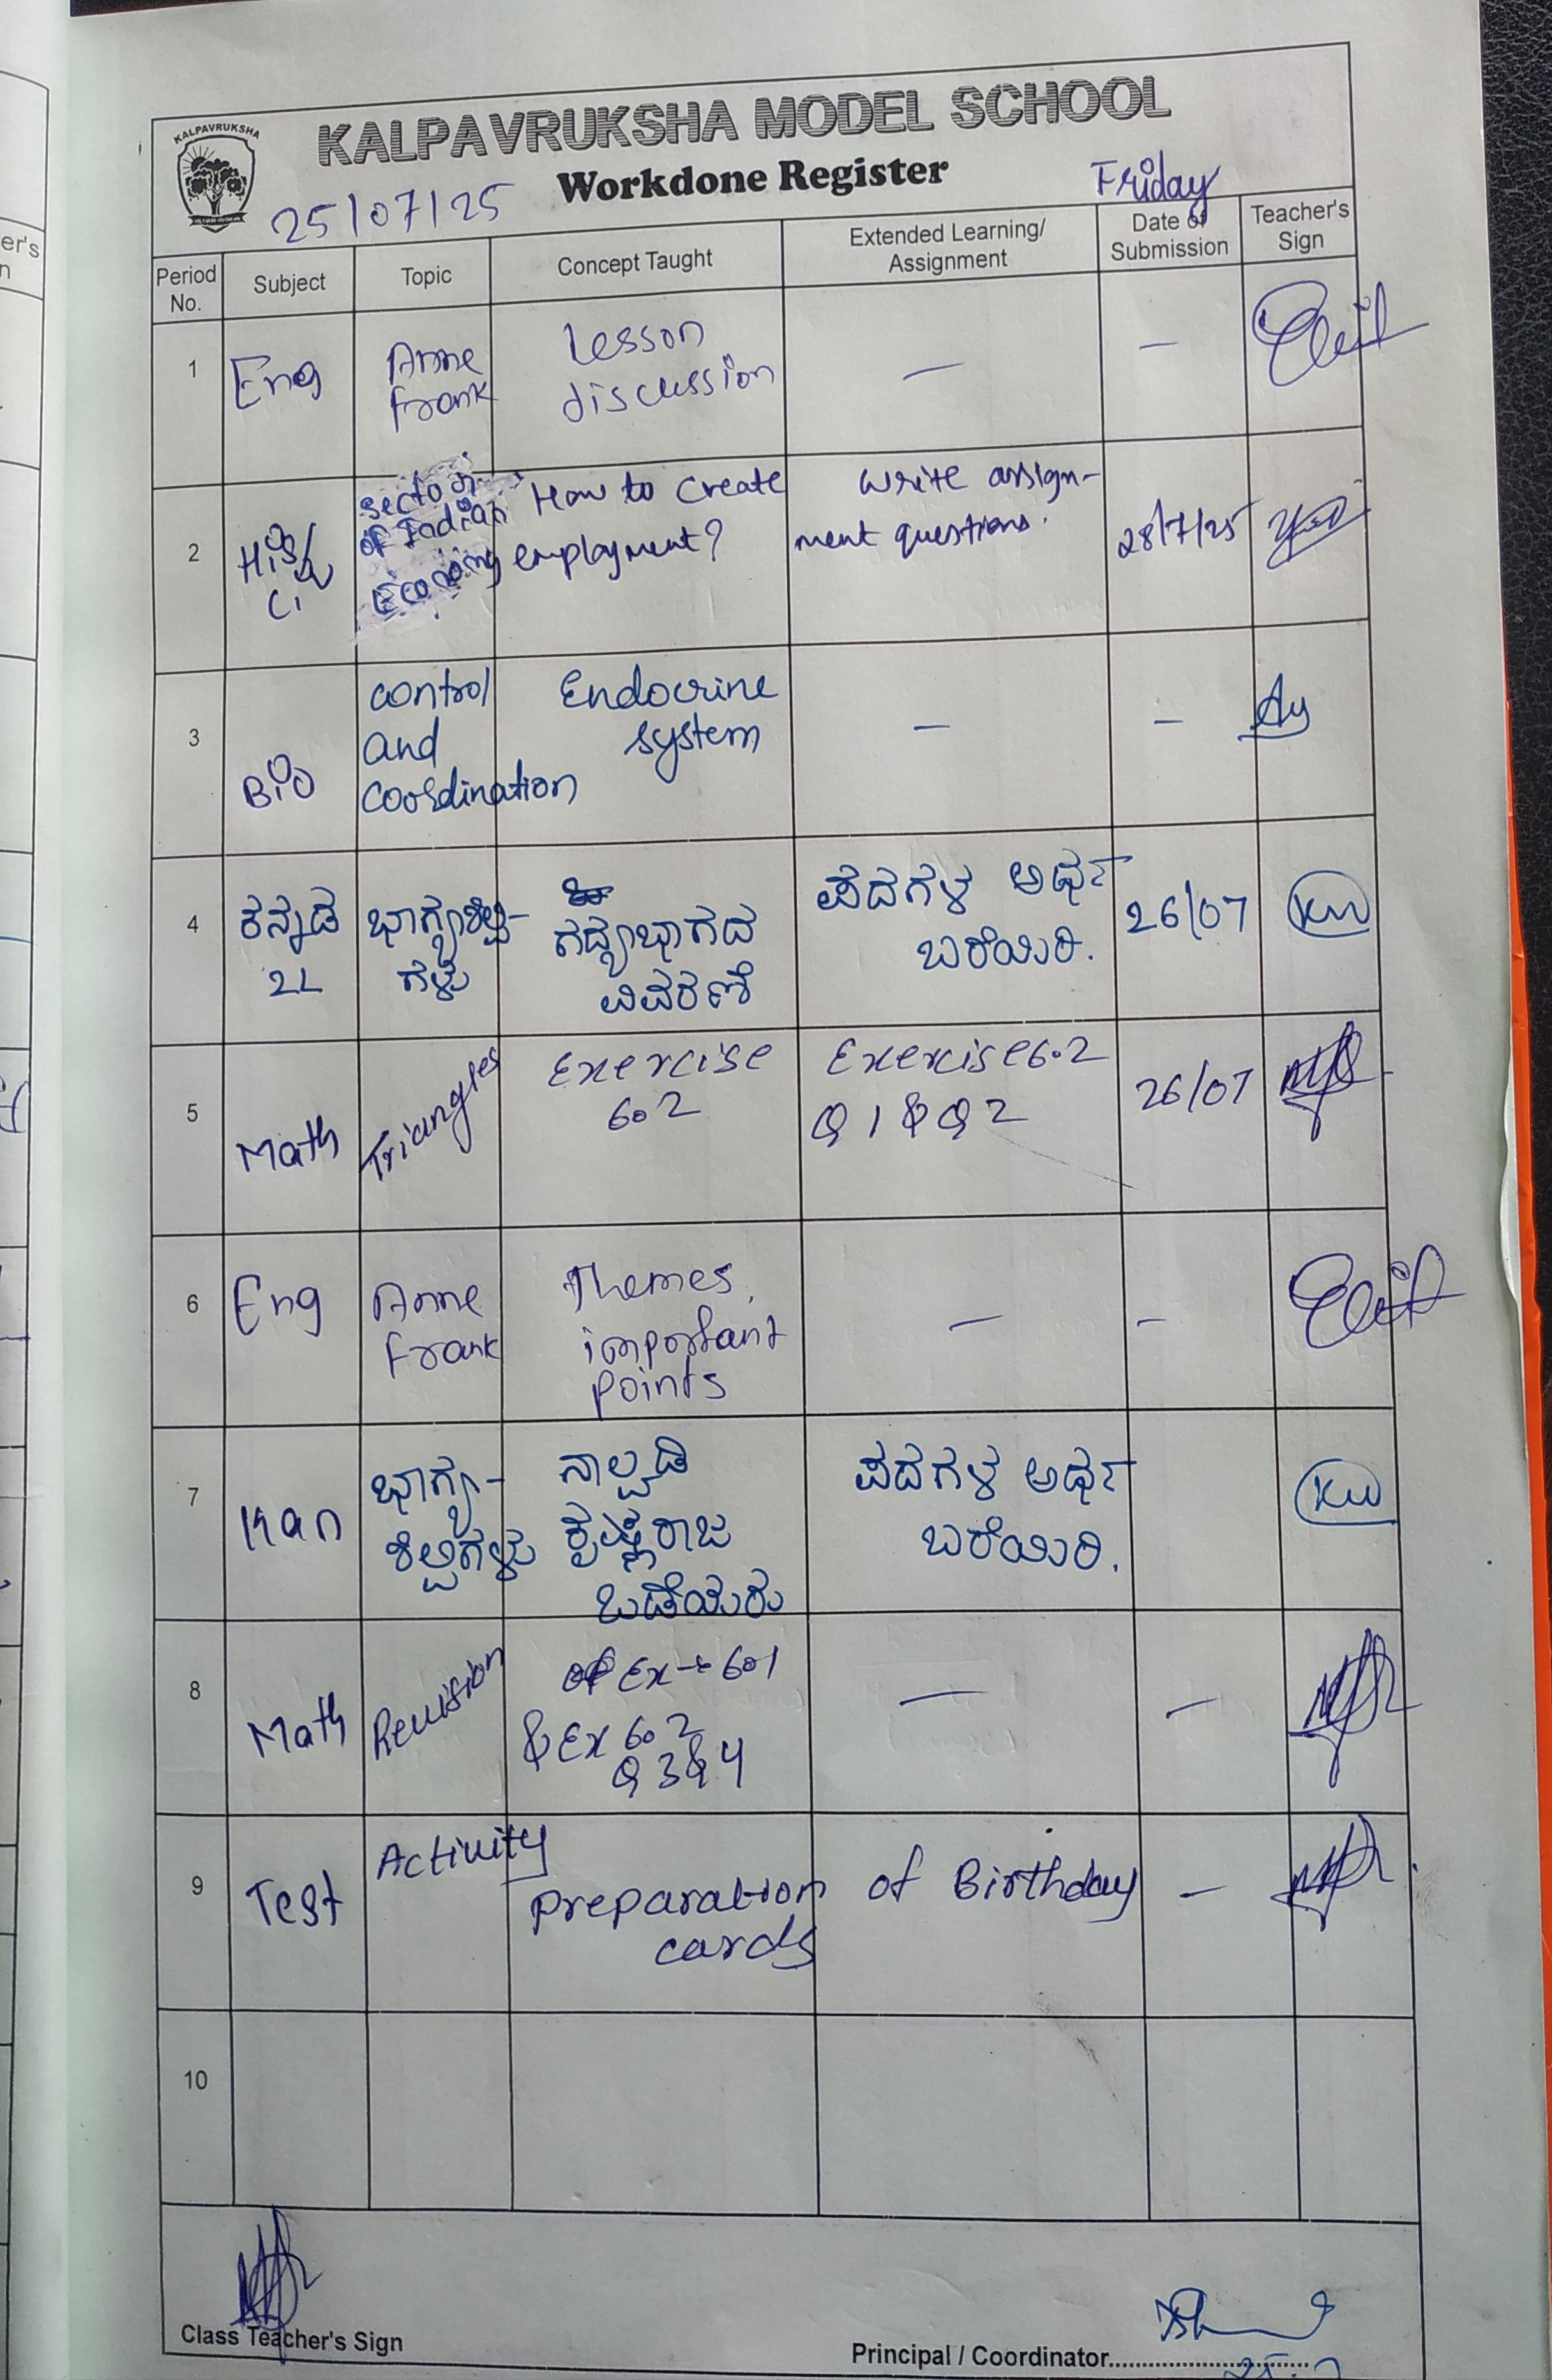 KALPAVRUKSHA
KALPAVRUKSHA MODEL SCHOOL
Workdone Register
25/07/25
Friday
Period No.
Subject
Topic
Concept Taught
Extended Learning/
Assignment
Date of
Submission
Teacher's
Sign
1
Eng
Anne
Frank
Lesson
discussion
—
—
2
His/
Ci
sector
of Indian
Economy
How to create
employment?
Write assign-
ment questions.
28/7/25
3
Bio
control
and
coordination
Endocrine
system
—
—
4
ಕನ್ನಡ
2L
ಭಾಗ್ಯಶಿಲ್ಪಿ-
ಗಳು
ಗದ್ಯಭಾಗದ
ವಿವರಣೆ
ಪದಗಳ ಅರ್ಥ
ಬರೆಯಿರಿ.
26/07
KW
5
Math
Triangles
Exercise
6.2
Exercise 6.2
Q 1 & Q 2
26/07
6
Eng
Anne
Frank
Themes,
important
points
—
–
7
Kan
ಭಾಗ್ಯ-
ಶಿಲ್ಪಿಗಳು
ನಾಲ್ವಡಿ
ಕೃಷ್ಣರಾಜ
ಒಡೆಯರು
ಪದಗಳ ಅರ್ಥ
ಬರೆಯಿರಿ.
KW
8
Math
Revision
of Ex → 6.1
& Ex 6.2
Q 3 & 4
—
—
9
Test
Activity
preparation of Birthday
cards
—
10
Class Teacher's Sign
Principal / Coordinator
er's
n